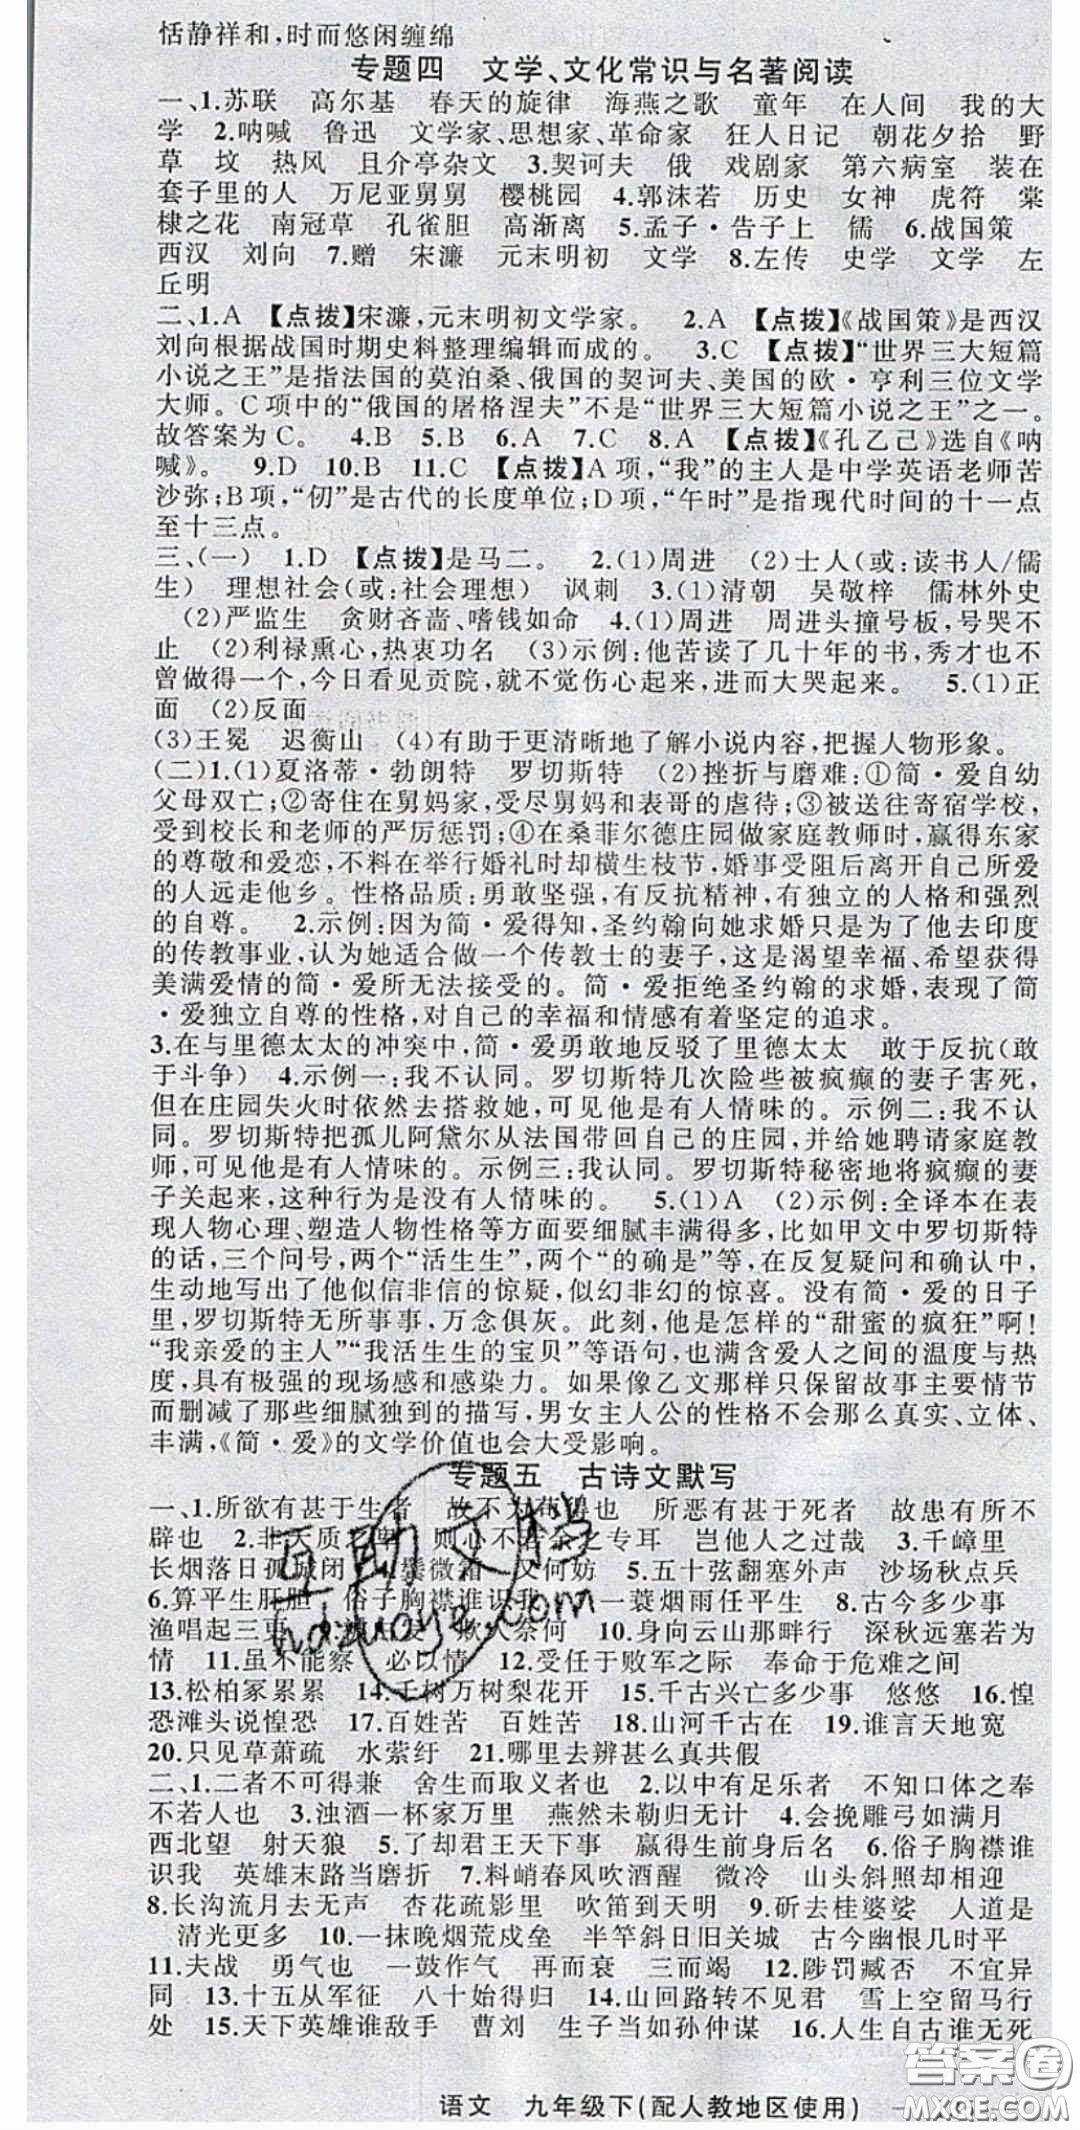 恬静祥和,时而悠闲缠绵
专题四　文学、文化常识与名著阅读
一、1.苏联　高尔基　春天的旋律　海燕之歌　童年　在人间　我的大
学　2.呐喊　鲁迅　文学家、思想家、革命家　狂人日记　朝花夕拾　野
草　坟　热风　且介亭杂文　3.契诃夫　俄　戏剧家　第六病室　装在
套子里的人　万尼亚舅舅　樱桃园　4.郭沫若　历史　女神　虎符　棠
棣之花　南冠草　孔雀胆　高渐离　5.孟子·告子上　儒　6.战国策
西汉　刘向　7.赠　宋濂　元末明初　文学　8.左传　史学　文学　左
丘明
二、1.A　【点拨】宋濂,元末明初文学家。　2.A　【点拨】《战国策》是西汉
刘向根据战国时期史料整理编辑而成的。　3.C　【点拨】“世界三大短篇
小说之王”是指法国的莫泊桑、俄国的契诃夫、美国的欧·亨利三位文学
大师。C项中的“俄国的屠格涅夫”不是“世界三大短篇小说之王”之一。
故答案为C。　4.B　5.B　6.A　7.C　8.A　【点拨】《孔乙己》选自《呐
喊》。　9.D　10.B　11.C　【点拨】A项,“我”的主人是中学英语老师苦
沙弥;B项,“仞”是古代的长度单位;D项,“午时”是指现代时间的十一点
至十三点。
三、(一)　1.D　【点拨】是马二。　2.(1)周进　(2)士人(或:读书人/儒
生)　理想社会(或:社会理想)　讽刺　3.(1)清朝　吴敬梓　儒林外史
(2)严监生　贪财吝啬、嗜钱如命　4.(1)周进　周进头撞号板,号哭不
止　(2)利禄熏心,热衷功名　(3)示例:他苦读了几十年的书,秀才也不
曾做得一个,今日看见贡院,就不觉伤心起来,进而大哭起来。　5.(1)正
面　(2)反面
(3)王冕　迟衡山　(4)有助于更清晰地了解小说内容,把握人物形象。
(二)1.(1)夏洛蒂·勃朗特　罗切斯特　(2)挫折与磨难:①简·爱自幼
父母双亡;②寄住在舅妈家,受尽舅妈和表哥的虐待;③被送往寄宿学校,
受到校长和老师的严厉惩罚;④在桑菲尔德庄园做家庭教师时,赢得东家
的尊敬和爱恋,不料在举行婚礼时却横生枝节,婚事受阻后离开自己所爱
的人远走他乡。性格品质:勇敢坚强,有反抗精神,有独立的人格和强烈
的自尊。　2.示例:因为简·爱得知,圣约翰向她求婚只是为了他去印度
的传教事业,认为她适合做一个传教士的妻子,这是渴望幸福、希望获得
美满爱情的简·爱所无法接受的。简·爱拒绝圣约翰的求婚,表现了简
·爱独立自尊的性格,对自己的幸福和情感有着坚定的追求。
3.在与里德太太的冲突中,简·爱勇敢地反驳了里德太太　敢于反抗(敢
于斗争)　4.示例一:我不认同。罗切斯特几次险些被疯癫的妻子害死,
但在庄园失火时依然去搭救她,可见他是有人情味的。示例二:我不认
同。罗切斯特把孤儿阿黛尔从法国带回自己的庄园,并给她聘请家庭教
师,可见他是有人情味的。示例三:我认同。罗切斯特秘密地将疯癫的妻
子关起来,这种行为是没有人情味的。　5.(1)A　(2)示例:全译本在表
现人物心理、塑造人物性格等方面要细腻丰满得多,比如甲文中罗切斯特
的话,三个问号,两个“活生生”,两个“的确是”等,在反复疑问和确认中,
生动地写出了他似信非信的惊疑,似幻非幻的惊喜。没有简·爱的日子
里,罗切斯特无所事事,万念俱灰。此刻,他是怎样的“甜蜜的疯狂”啊!
“我亲爱的主人”“我活生生的宝贝”等语句,也满含爱人之间的温度与热
度,具有极强的现场感和感染力。如果像乙文那样只保留故事主要情节
而删减了那些细腻独到的描写,男女主人公的性格不会那么真实、立体、
丰满,《简·爱》的文学价值也会大受影响。
专题五　古诗文默写
一、1.所欲有甚于生者　故不为苟得也　所恶有甚于死者　故患有所不
辟也　2.非天质之卑　则心不若余之专耳　岂他人之过哉　3.千嶂里
长烟落日孤城闭　4.鬓微霜　又何妨　5.五十弦翻塞外声　沙场秋点兵
6.算平生肝胆　俗子胸襟谁识我　一蓑烟雨任平生　8.古今多少事
渔唱起三更　欺人奈何　10.身向云山那畔行　深秋远塞若为
情　11.虽不能察　必以情　12.受任于败军之际　奉命于危难之间
13.松柏冢累累　14.千树万树梨花开　15.千古兴亡多少事　悠悠　16.惶
恐滩头说惶恐　17.百姓苦　百姓苦　18.山河千古在　19.谁言天地宽
20.只见草萧疏　水萦纡　21.哪里去辨甚么真共假
二、1.二者不可得兼　舍生而取义者也　2.以中有足乐者　不知口体之奉
不若人也　3.浊酒一杯家万里　燕然未勒归无计　4.会挽雕弓如满月
西北望　射天狼　5.了却君王天下事　赢得生前身后名　6.俗子胸襟谁
识我　英雄末路当磨折　7.料峭春风吹酒醒　微冷　山头斜照却相迎
8.长沟流月去无声　杏花疏影里　吹笛到天明　9.斫去桂婆娑　人道是
清光更多　10.一抹晚烟荒戍垒　半竿斜日旧关城　古今幽恨几时平
11.夫战　勇气也　一鼓作气　再而衰　三而竭　12.陟罚臧否　不宜异
同　13.十五从军征　八十始得归　14.山回路转不见君　雪上空留马行
处　15.天下英雄谁敌手　曹刘　生子当如孙仲谋　16.人生自古谁无死
语文　九年级下(配人教地区使用)
互助文档
hdzuoye.com
答案圈
MXQE.COM